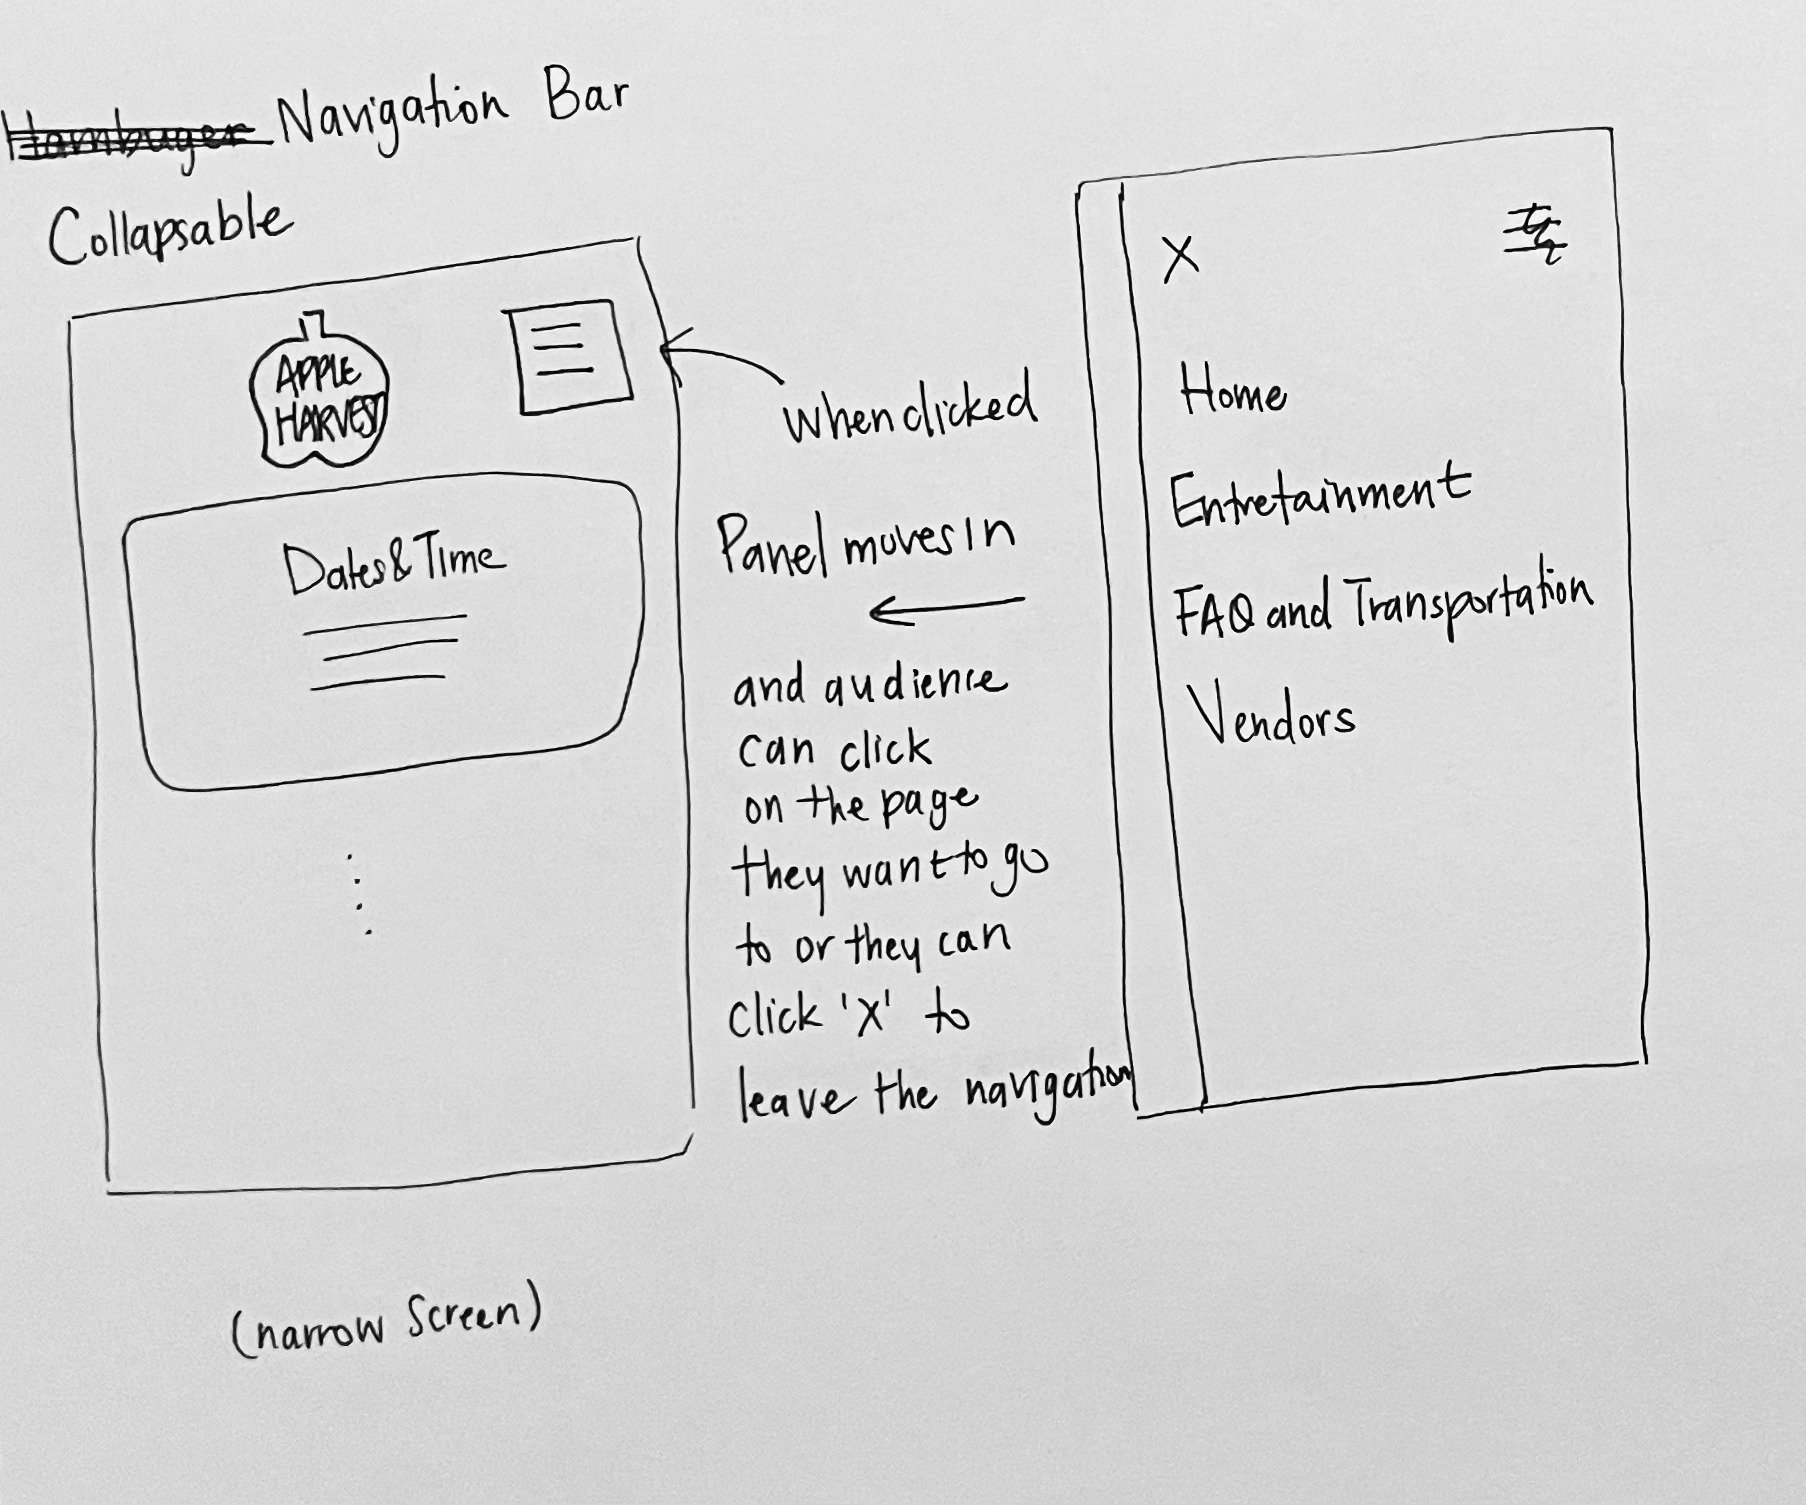 Hambuger Navigation Bar
Collapsable
APPLE
HARVEST
Dates & Time
when clicked
Panel moves in
and audience
can click
on the page
they want to go
to or they can
click 'X' to
leave the navigation
X
Home
Entretainment
FAQ and Transportation
Vendors
(narrow Screen)